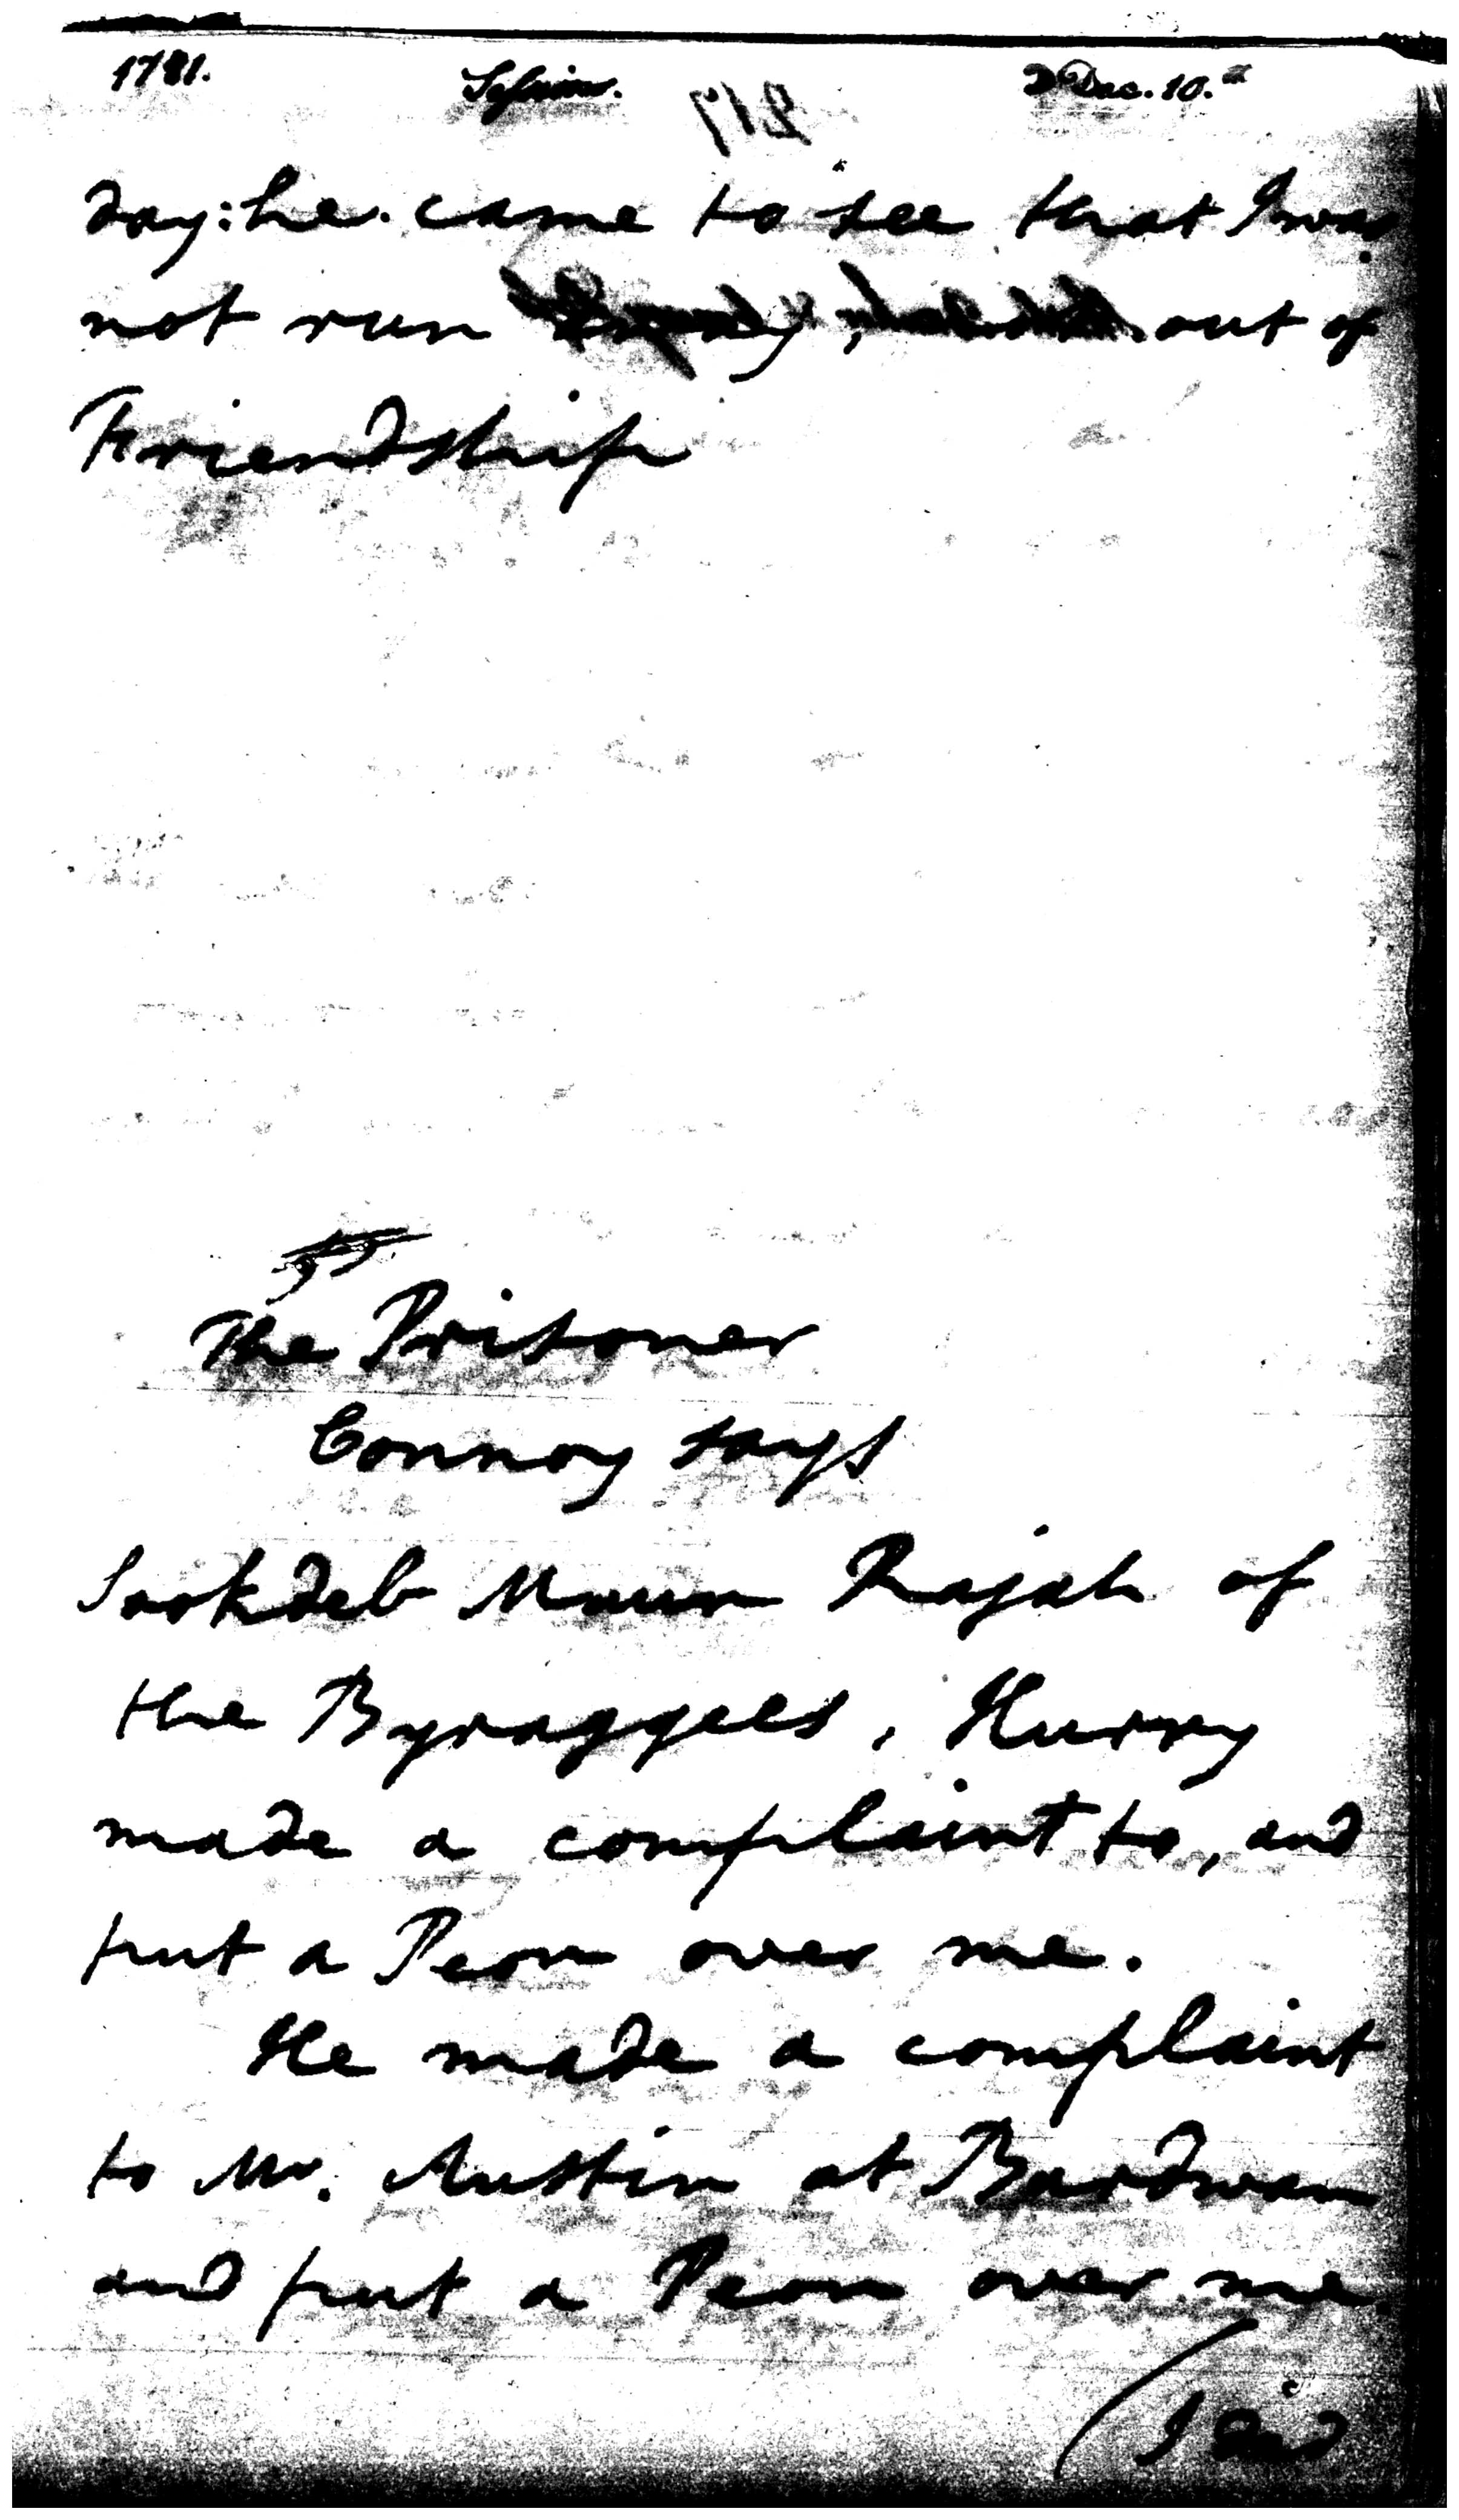 1781. Session. Dec. 10.
day: he came to see that I was
not run out of
Friendship
The Prisoner
Connoy says
Sookdeb Maun Rajah of
the Byraggees, Hurry
made a complaint to, and
put a Peon over me.
He made a complaint
to Mr. Austin at Bardwan
and put a Peon over me.
(I did